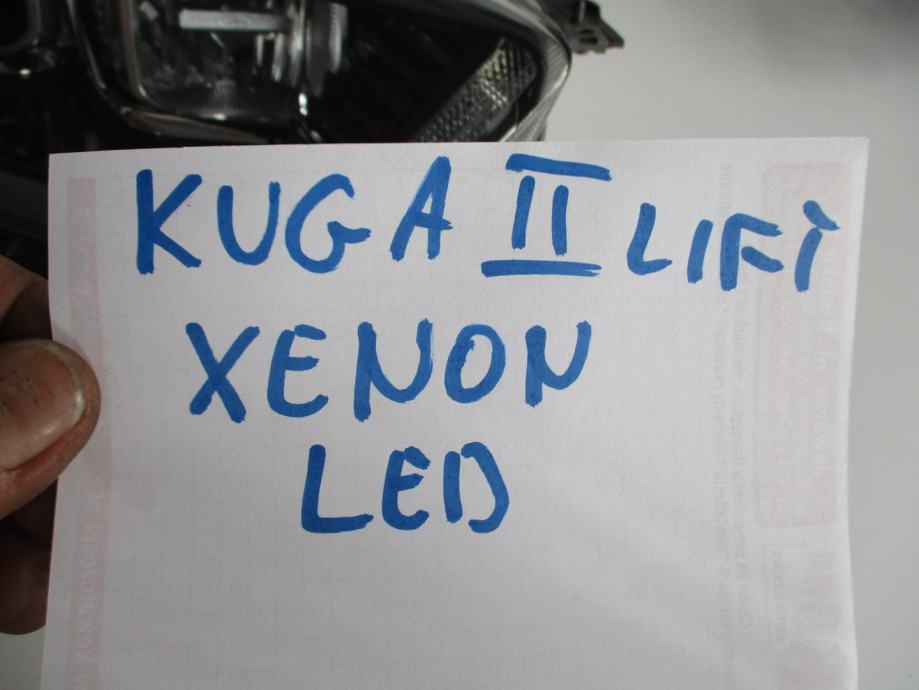 KUGA II LIFT
XENON
LED